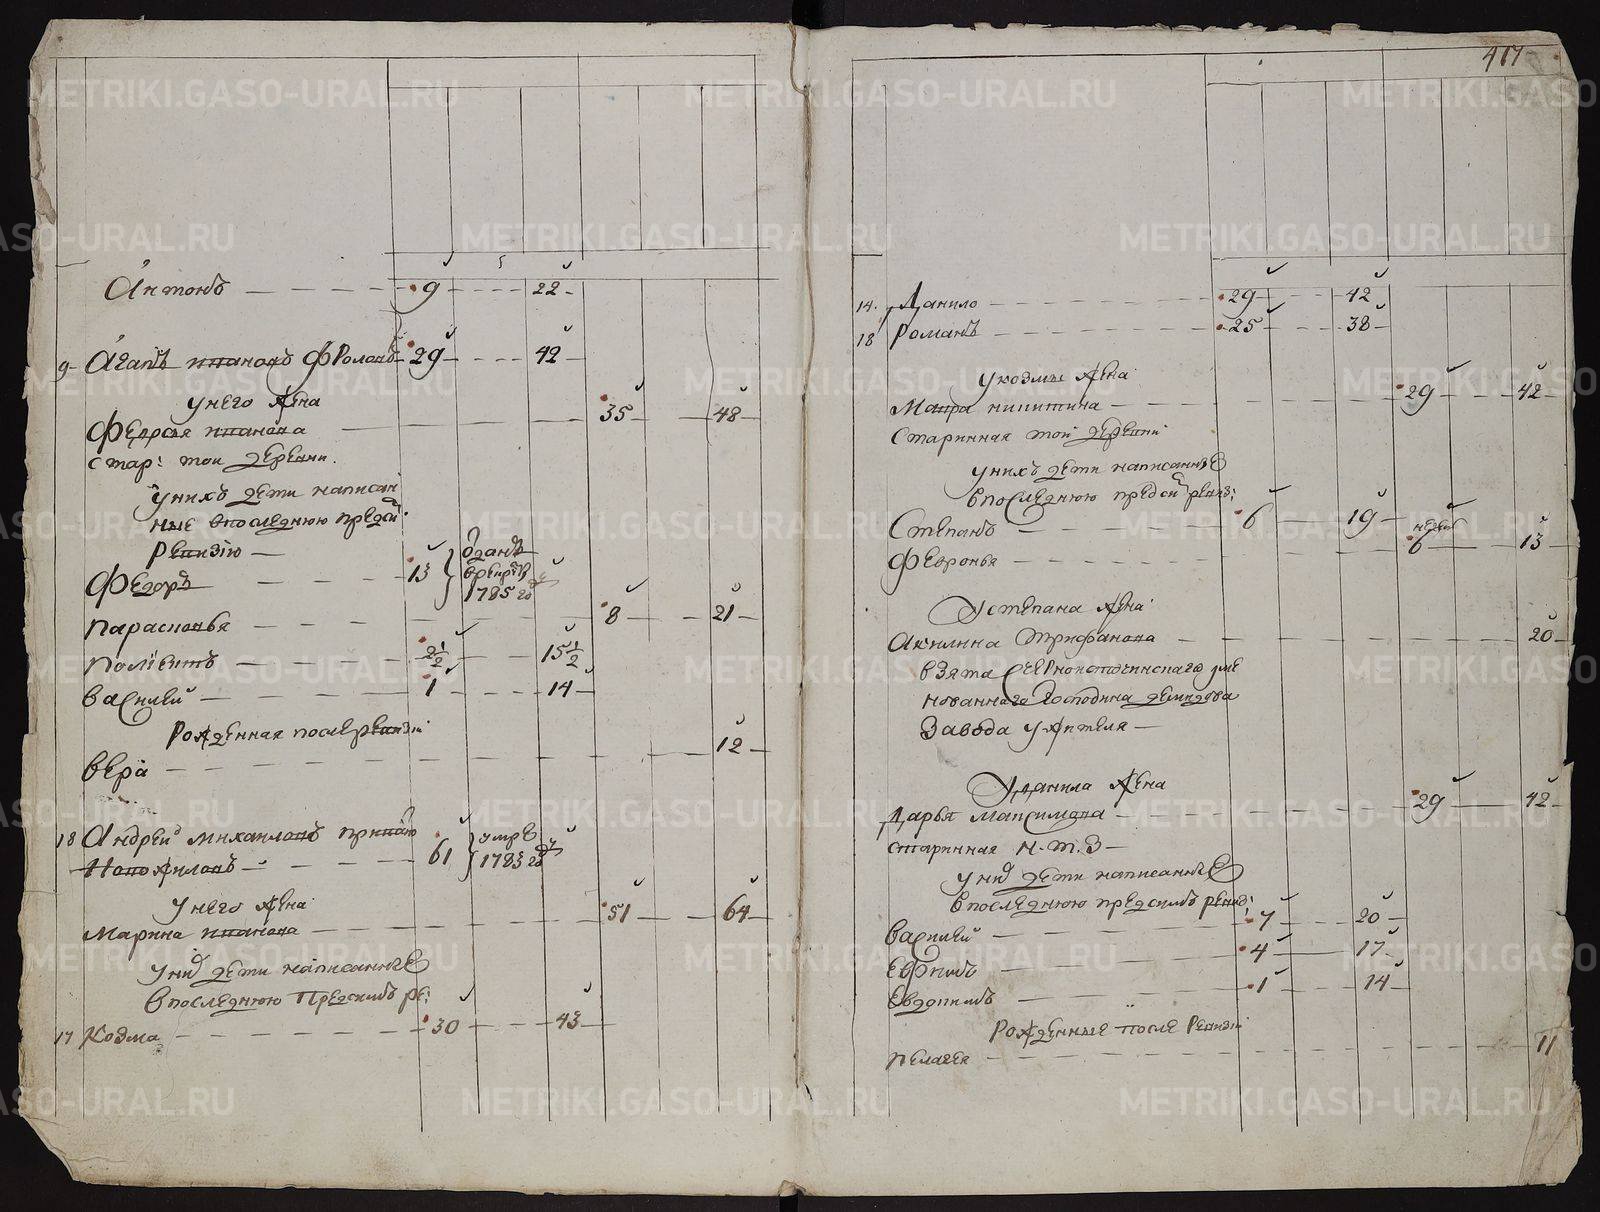 417
Антонъ 9 22
9 Агапъ Ивановъ Фроловъ 29 42
у него жена
Федосья Иванова 35 48
стар: тои деревни.
у нихъ дети написан
ные впоследнюю пред сиi
ревизiю
Федоръ 13 } одданъ
врекруты
1785 год
Парасковья 8 21
Полiектъ 2 1/2 15 1/2
Василей 1 14
Рожденная после ревизiи
Вера 12
18 Андрей Михаиловъ
Новожиловъ 61 } умре
1783 год
у него жена
Марина Иванова 51 64
у них дети написанные
впоследнюю пред симъ ре:
17 Козма 30 43
14. Данило 29 42
18 Романъ 25 38
у козмы жена
Мавра никитина 29 42
старинная той деревни
у нихъ дети написанные
впоследнюю пред сиi ревиз:
Степанъ 6 19
Февронья 6 13
У степана жена
Акилина Трифанова 20
взята
нованнаго Господина демидова
завода у жителя
У данила жена
Дарья Максимова 29 42
старинная н. т. з
у них дети написанные
впоследнюю пред симъ ревиз:
Василей 7 20
Ефимъ 4 17
Евдокимъ 1 14
Рожденные после Ревизiи
Пелагея 11
METRIKI.GASO-URAL.RU